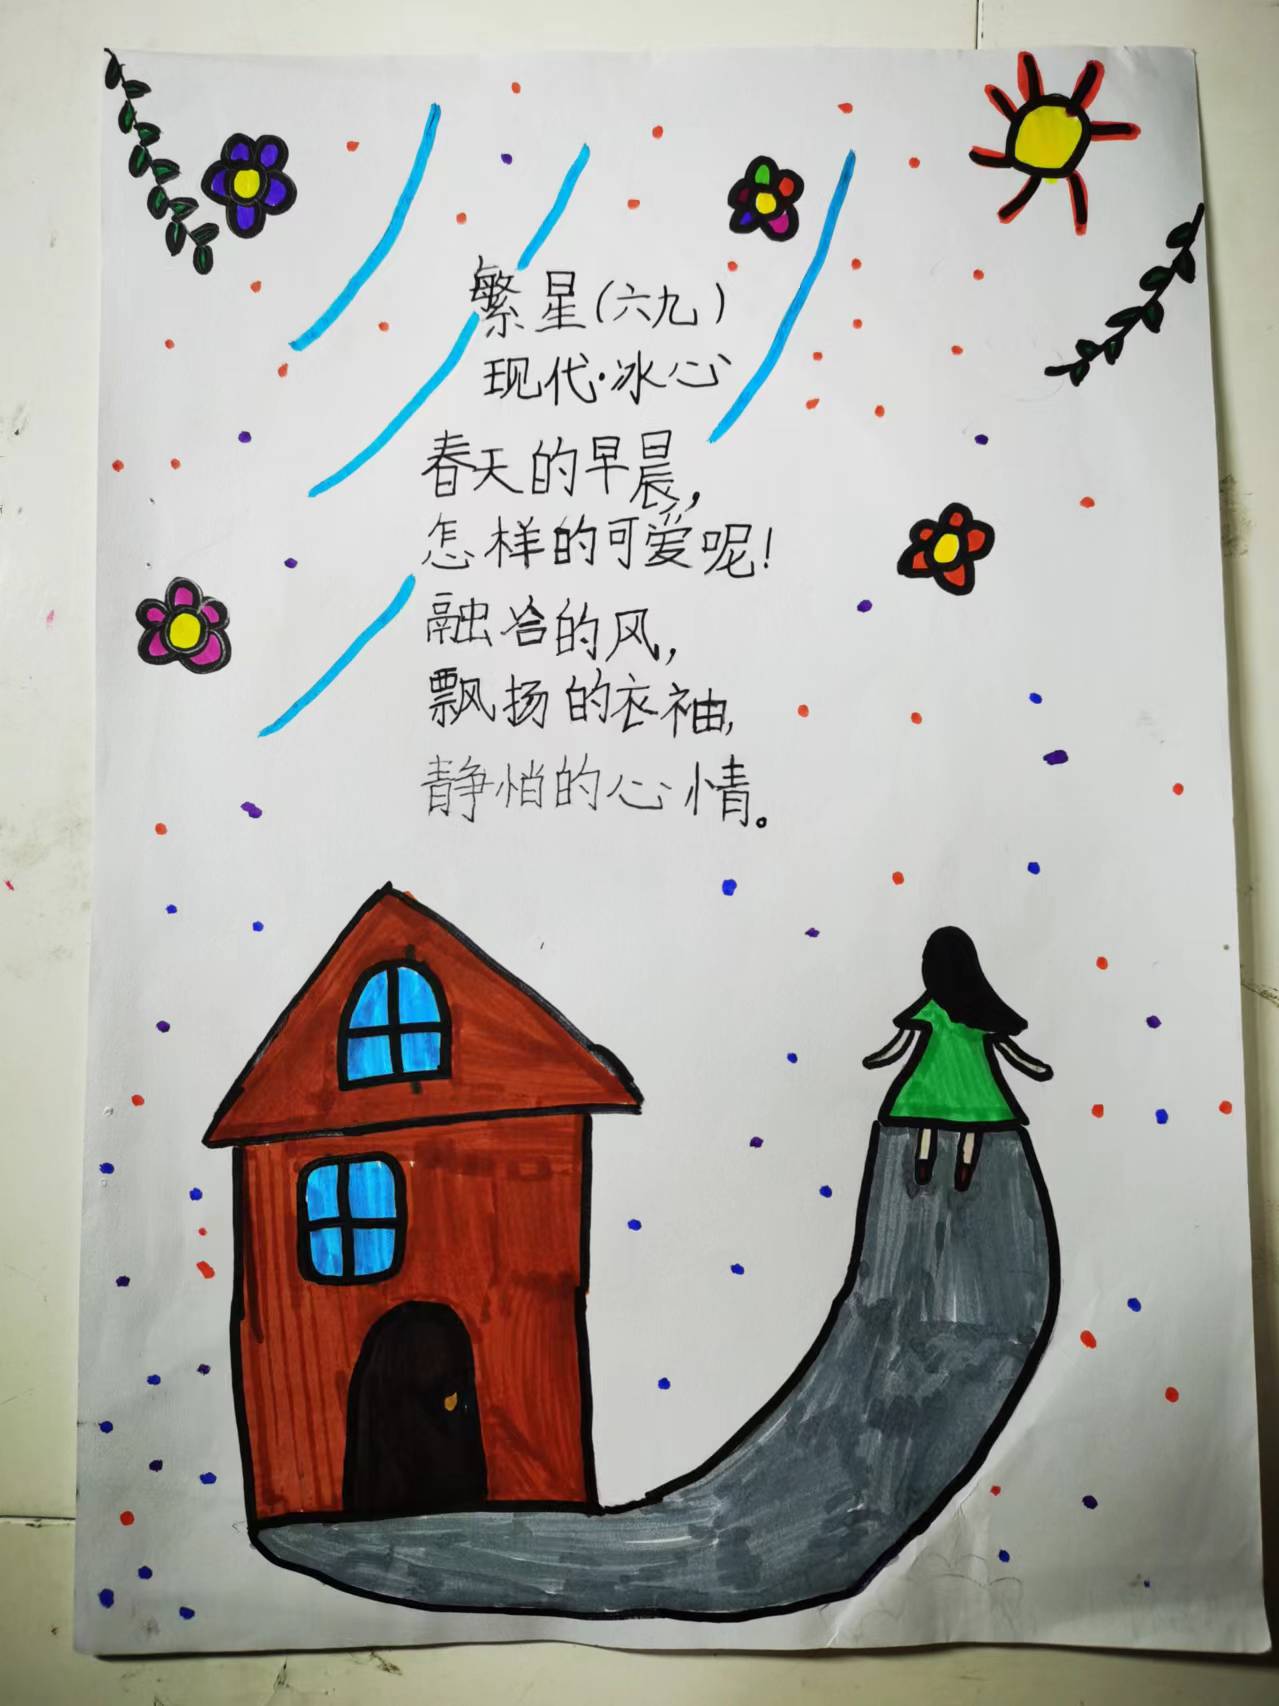 繁星(六九)
现代·冰心
春天的早晨,
怎样的可爱呢!
融洽的风,
飘扬的衣袖,
静悄的心情。